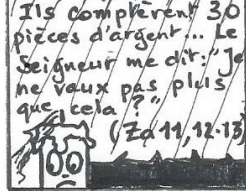 Ils comptèrent 30
pièces d'argent... Le
Seigneur me dit: "Je
ne vaux pas plus
que cela ?"
(Za 11, 12-13)